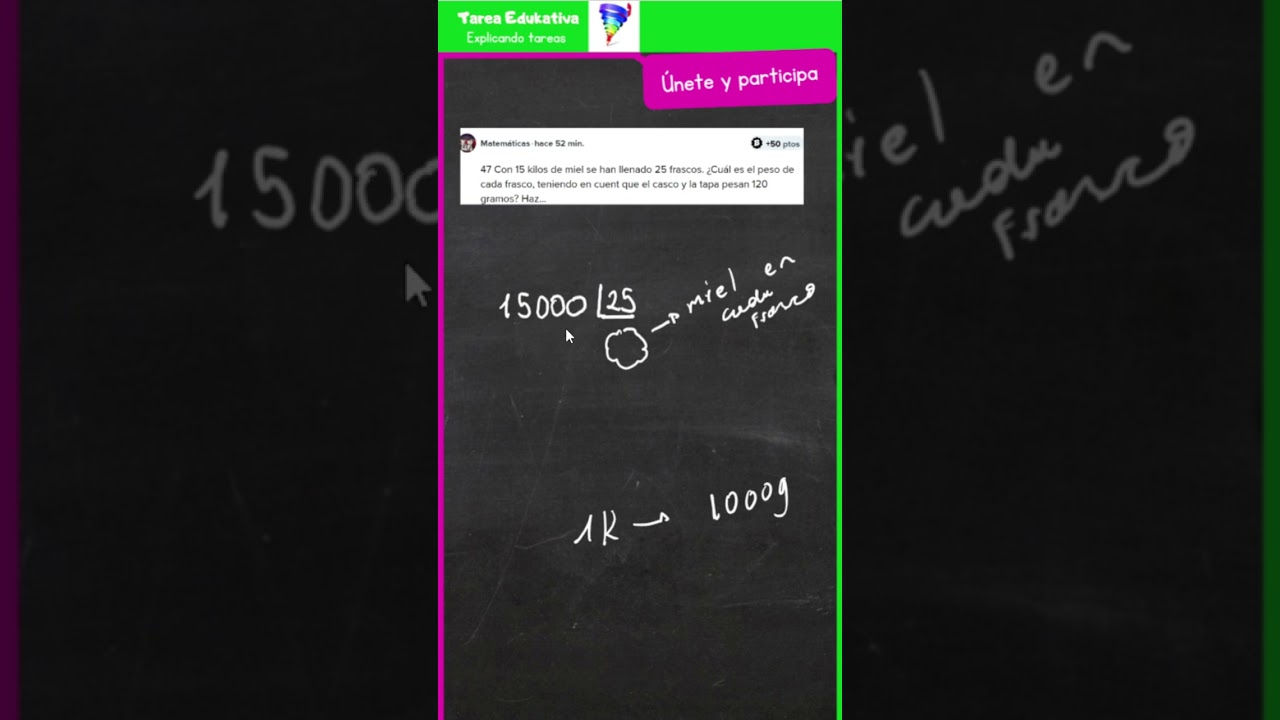 Tarea Edukativa
Explicando tareas
Únete y participa
Matemáticas · hace 52 min.
+50 ptos
47 Con 15 kilos de miel se han llenado 25 frascos. ¿Cuál es el peso de
cada frasco, teniendo en cuent que el casco y la tapa pesan 120
gramos? Haz...
15000 25
miel en
cada
frasco
1K → 1000g